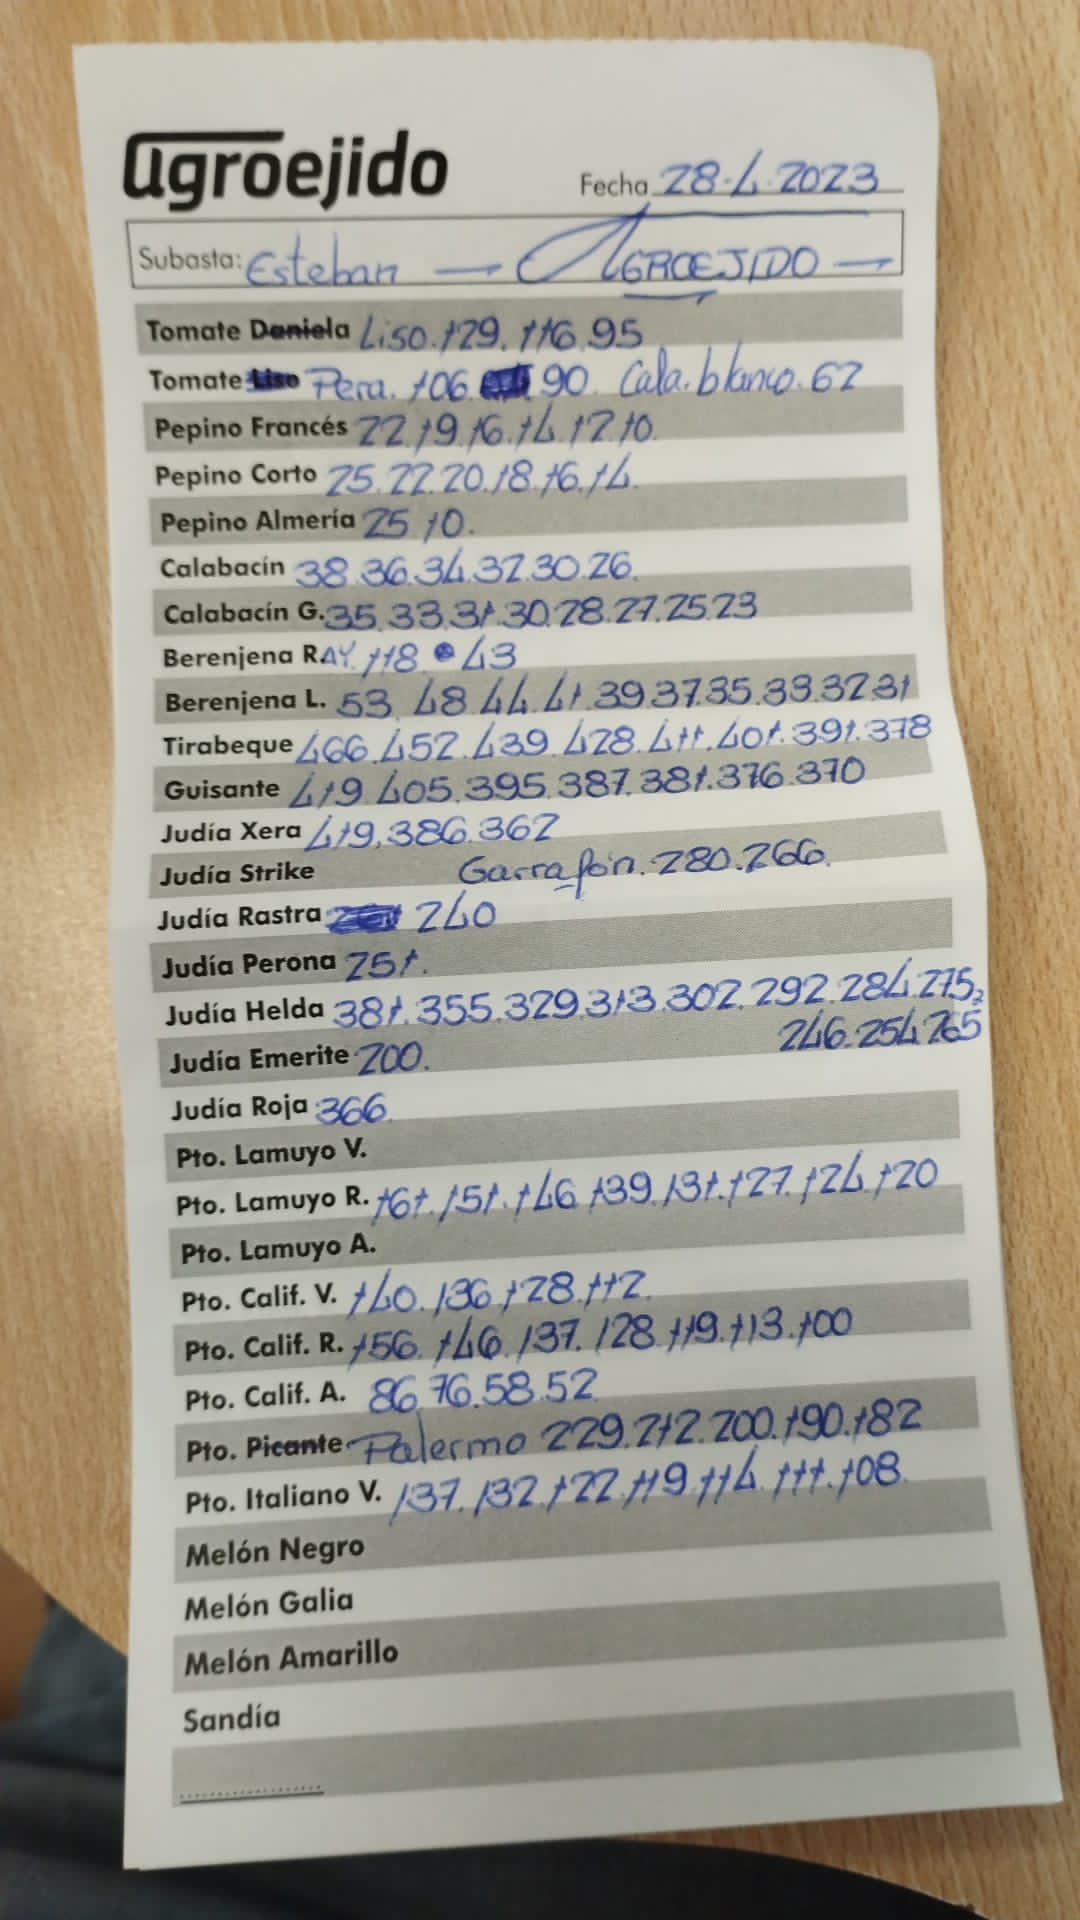 agroejido
Fecha 28.4.2023
Subasta: Esteban — AGROEJIDO —
Tomate Daniela Liso.129.116.95
Tomate Liso Pera.106 90. Cala.blanco.62
Pepino Francés 22.19.16.14.12.10.
Pepino Corto 25.22.20.18.16.14.
Pepino Almería 25.10.
Calabacín 38.36.34.32.30.26.
Calabacín G. 35.33.31.30.28.27.25.23
Berenjena R.AY. 118 43
Berenjena L. 53.48.44.41.39.37.35.33.32.31
Tirabeque 466.452.439.428.411.401.391.378
Guisante 419.405.395.387.381.376.370
Judía Xera 419.386.362
Judía Strike Garrafón.280.266.
Judía Rastra 240
Judía Perona 251.
Judía Helda 381.355.329.313.302.292.284.275,
246.254.265
Judía Emerite 200.
Judía Roja 366.
Pto. Lamuyo V.
Pto. Lamuyo R. 161.151.146.139.131.127.124.120
Pto. Lamuyo A.
Pto. Calif. V. 140.136.128.112.
Pto. Calif. R. 156.146.137.128.119.113.100
Pto. Calif. A. 86.76.58.52
Pto. Picante Palermo 229.212.200.190.182
Pto. Italiano V. 137.132.122.119.114.111.108.
Melón Negro
Melón Galia
Melón Amarillo
Sandía